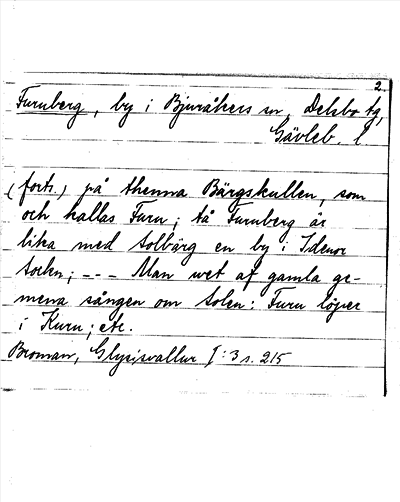 2.
Furuberg, by i Bjuråkers sn, Delsbo tg,
Gävleb. l
(forts.) på thenna Bärgskullen, som
och kallas Furu; tå Furuberg är
lika med Solbärg en by i Idenor
Sockn; --- Man wet af gamla ge-
mena sången om Solen: Furu löper
i Kuru; etc.
Broman, Glysisvallur I:3 s. 215